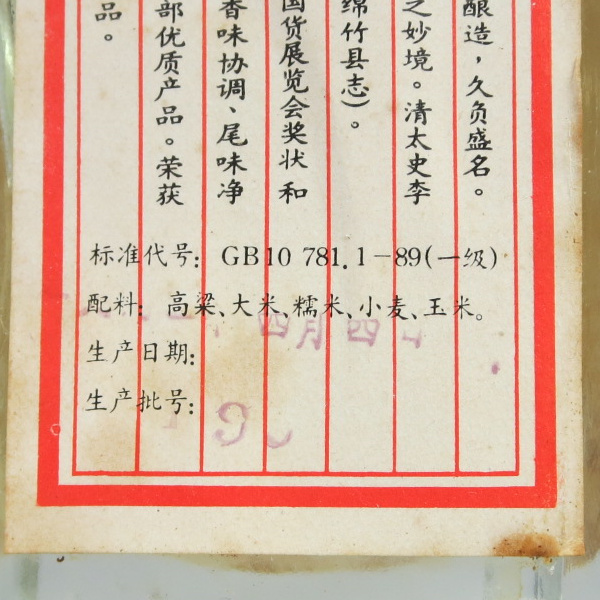 酿造，久负盛名。
之妙境。清太史李
绵竹县志）。
国货展览会奖状和
香味协调、尾味净
部优质产品。荣获
品。
标准代号：GB10 781.1-89(一级)
配料：高粱、大米、糯米、小麦、玉米。
四月四日
生产日期：
生产批号：